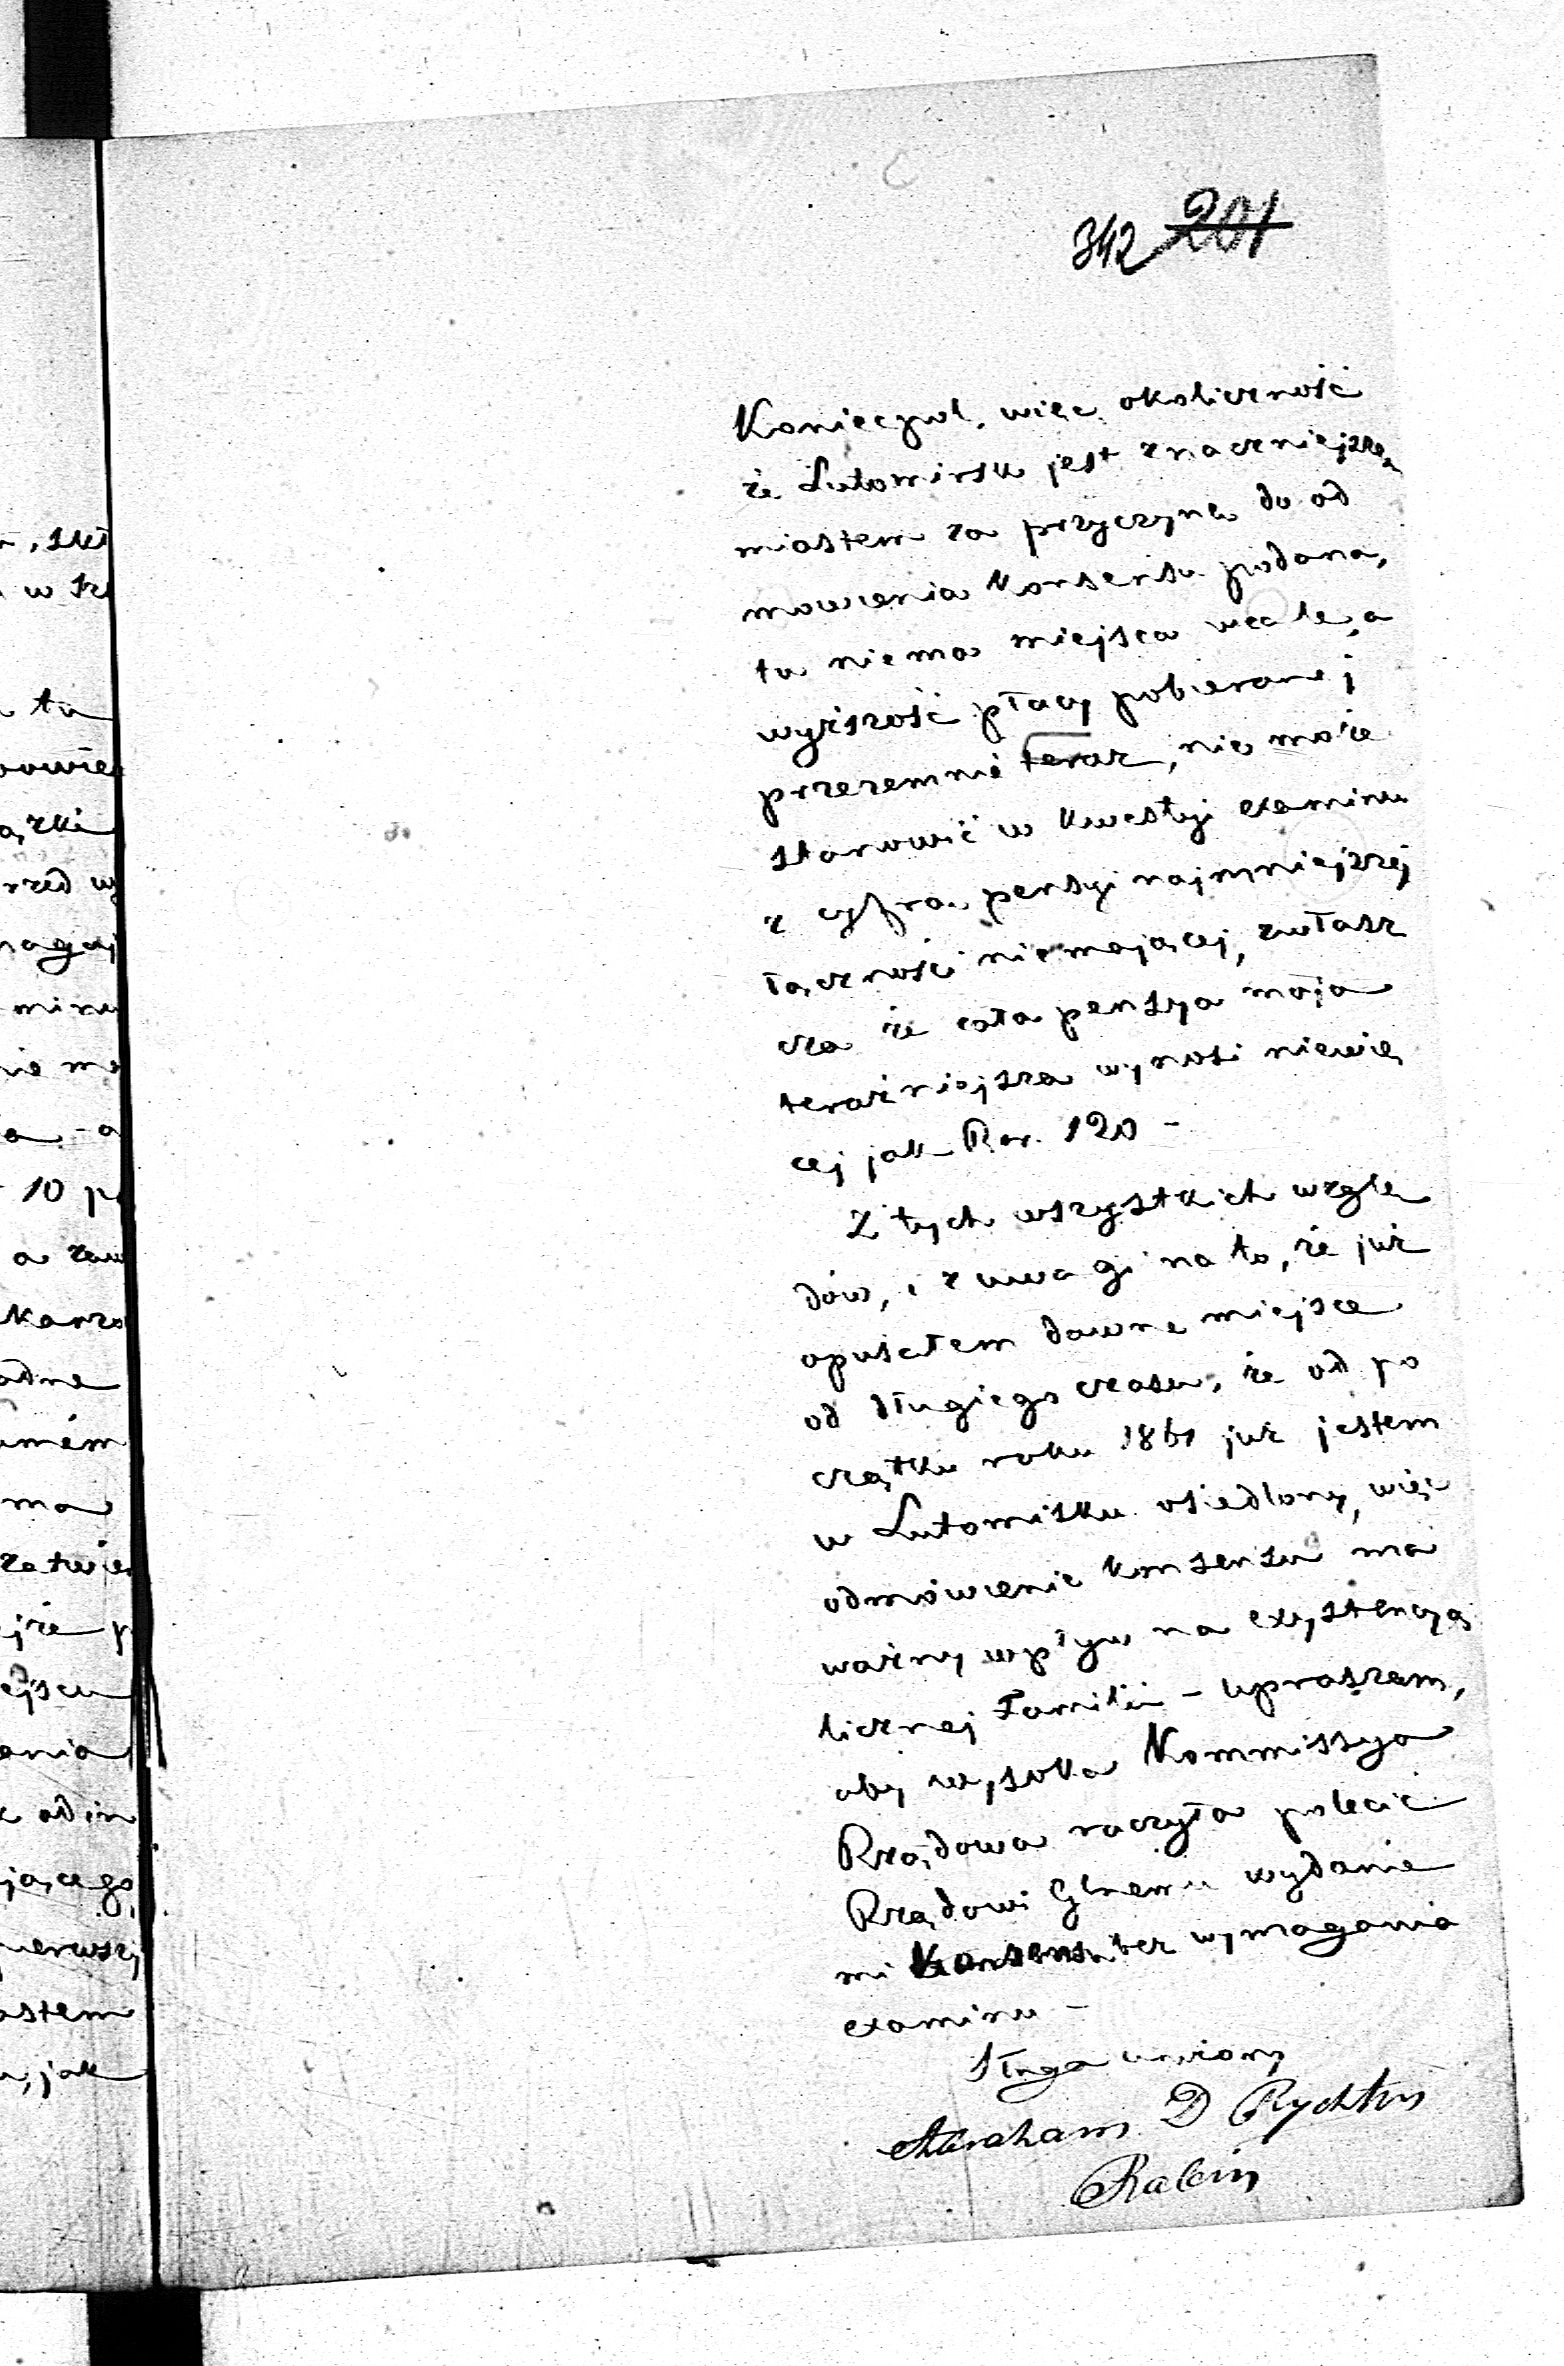 342 201
Koniecpol, więc okoliczność
że Lutomirsk jest znaczniejszą
miastem za przyczynę do od
mowienia Konsensu podana,
tu niema miejsca wcale, a
wyższość płacy pobieranej
przezemnie teraz, nie może
stanowić w kwestyi examinu
z cyfrą pensyi najmniejszej
łączności niemającej, zwłasz
cza że cała pensya moja
teraźniejsza wynosi niewię
cej jak Rsr. 120 -
Z tych wszystkich wzglę
dów, i z uwagi na to, że już
opuściłem dawne miejsce
od długiego czasu, że od po
czątku roku 1861 już jestem
w Lutomisku osiedlony, więc
odmówienie konsensu ma
ważny wpływ na exystencyą
licznej Familii - upraszam,
aby wysoka Kommissya
Rządowa raczyła polecić
Rządowi Glnemu wydanie
mi Konsensu bez wymagania
examinu -
Sługa uniżony
Abraham D Rychter
Rabin
, skł
w Kr
ta
powie
ązki
rzed wy
magaj
minu
nie mo
a - a
10 p
a zaw
Karzo
adne
umém
ma
zatwie
jże p
ejscu
ania
z od in
jącego
pierwszej
astem
, jak